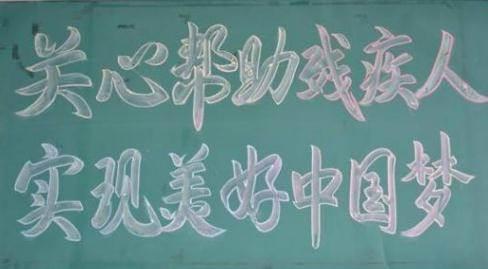 关心帮助残疾人
实现美好中国梦